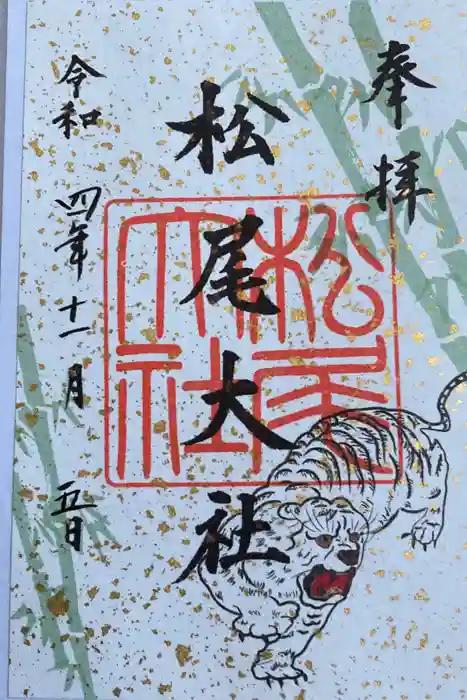 奉拝
松尾大社
松尾大社
令和四年十一月五日